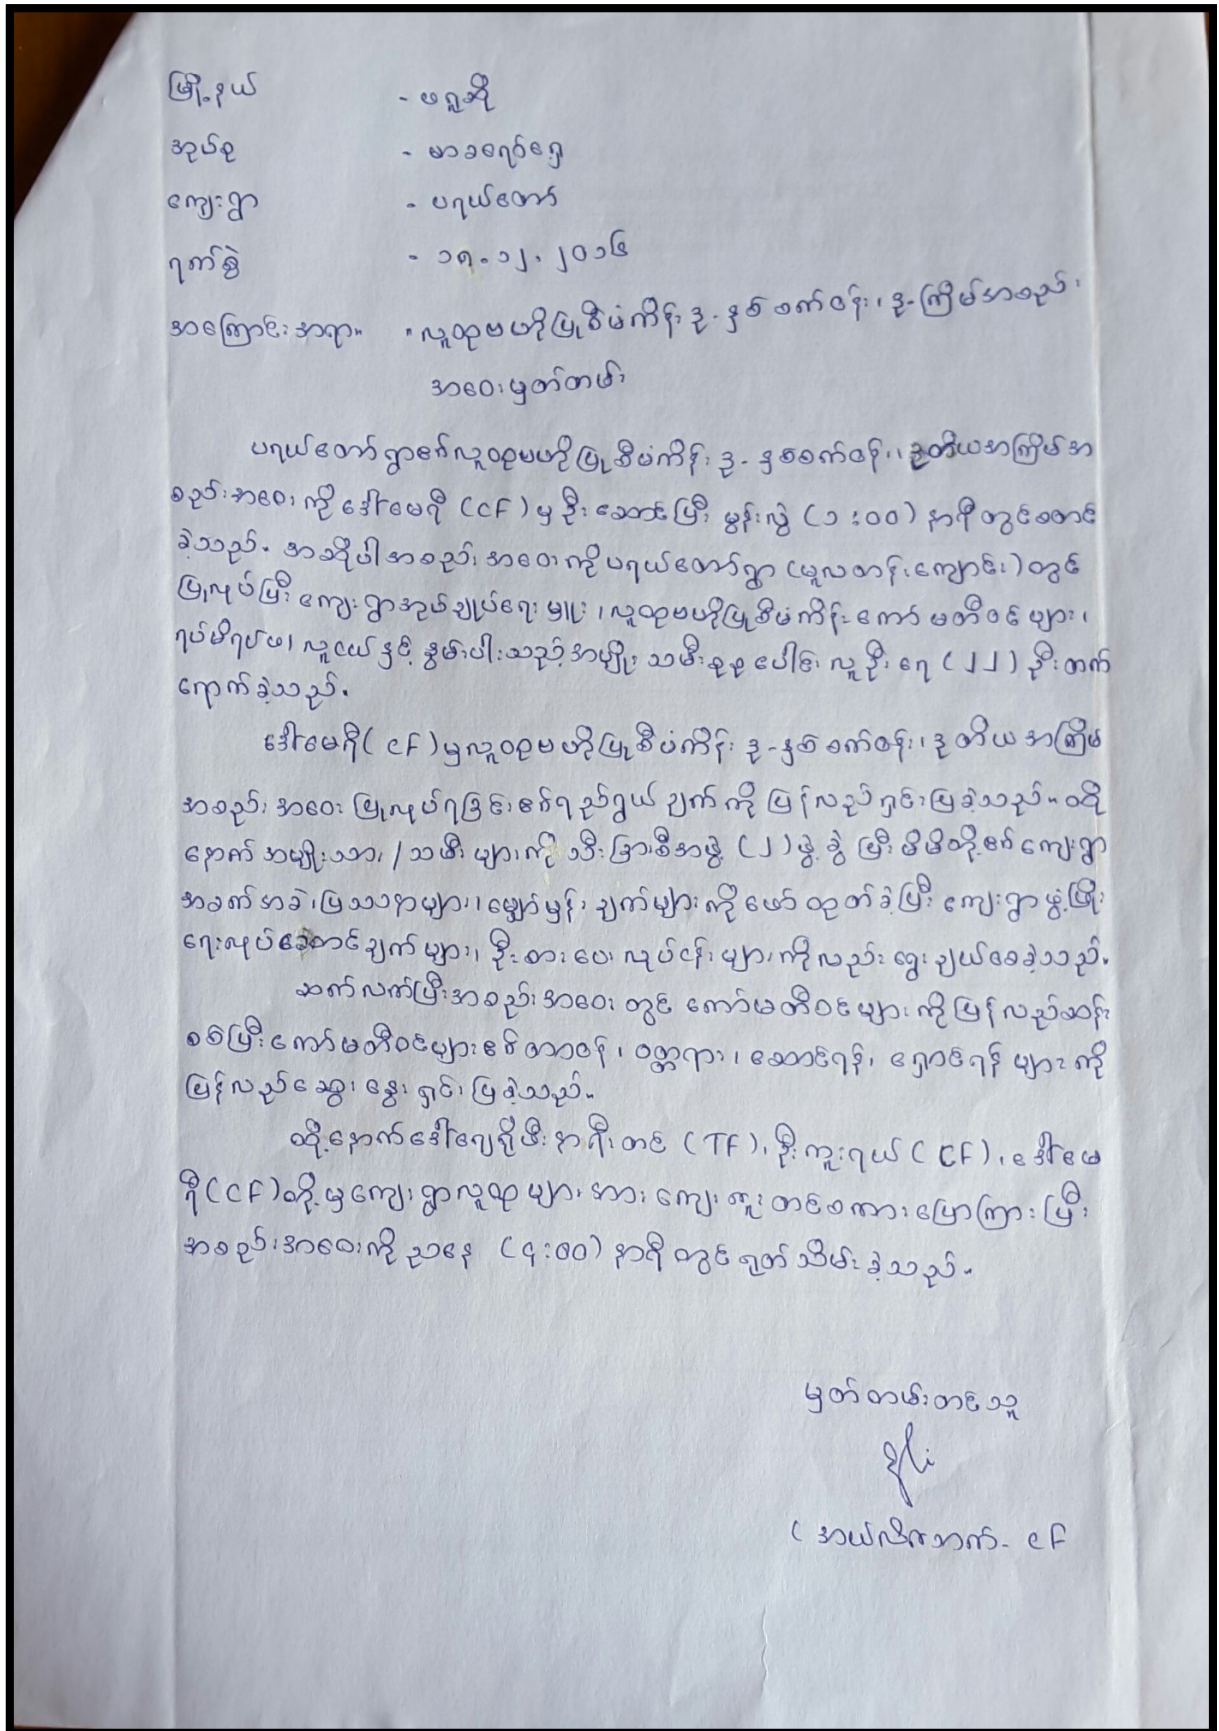 မြို့နယ် - ဖရူဆို
အုပ်စု - မာခရော်ရှေ
ကျေးရွာ - ပရယ်တော်
ရက်စွဲ - ၁၅.၁၂.၂၀၁၆
အကြောင်းအရာ။ ။ လူထုဗဟိုပြုစီမံကိန်း ဒု-နှစ်စက်ဝန်း၊ ဒု-ကြိမ်အစည်း
အဝေးမှတ်တမ်း
ပရယ်တော်ရွာ၏လူထုဗဟိုပြုစီမံကိန်း ဒု-နှစ်စက်ဝန်း၊ ဒုတိယအကြိမ်အ
စည်းအဝေးကို ဒေါ်မေရီ (CF) မှ ဦးဆောင်ပြီး မွန်းလွဲ (၁:၀၀) နာရီတွင်စတင်
ခဲ့သည်။ အဆိုပါအစည်းအဝေးကိုပရယ်တော်ရွာ (မူလတန်းကျောင်း) တွင်
ပြုလုပ်ပြီး ကျေးရွာအုပ်ချုပ်ရေးမှူး၊ လူထုဗဟိုပြုစီမံကိန်းကော်မတီဝင်များ၊
ရပ်မိရပ်ဖ၊ လူငယ်နှင့် စွမ်းပါးသည့်အမျိုးသမီးစုစုပေါင်း လူဦးရေ (၂၂) ဦးတက်
ရောက်ခဲ့သည်။
ဒေါ်မေရီ (CF) မှလူထုဗဟိုပြုစီမံကိန်း ဒု-နှစ်စက်ဝန်း၊ ဒုတိယအကြိမ်
အစည်းအဝေးပြုလုပ်ရခြင်း၏ရည်ရွယ်ချက်ကို ပြန်လည်ရှင်းပြခဲ့သည်။ ထို့
နောက်အမျိုးသား/သမီးများကို သီးခြားစီအဖွဲ့ (၂) ဖွဲ့ ခွဲပြီး မိမိတို့၏ကျေးရွာ
အခက်အခဲ၊ ပြဿနာများ၊ မျှော်မှန်းချက်များကိုဖော်ထုတ်ခဲ့ပြီး ကျေးရွာဖွံ့ဖြိုး
ရေးလုပ်ဆောင်ချက်များ၊ ဦးစားပေးလုပ်ငန်းများကိုလည်း ရွေးချယ်စေခဲ့သည်။
ဆက်လက်ပြီးအစည်းအဝေးတွင် ကော်မတီဝင်များကိုပြန်လည်ဆန်း
စစ်ပြီးကော်မတီဝင်များ၏တာဝန်၊ ဝတ္တရား၊ ဆောင်ရန်၊ ရှောင်ရန်များကို
ပြန်လည်ဆွေးနွေးရှင်းပြခဲ့သည်။
ထို့နောက်ဒေါ် (TF)၊ ဦးကူးရယ် (CF)၊ ဒေါ်မေ
ရီ (CF) တို့မှကျေးရွာလူထုများအား ကျေးဇူးတင်စကားပြောကြားပြီး
အစည်းအဝေးကို ညနေ (၄:၀၀) နာရီတွင်ရုတ်သိမ်းခဲ့သည်။
မှတ်တမ်းတင်သူ
Eli
(အယ်လီဇဘက်- CF